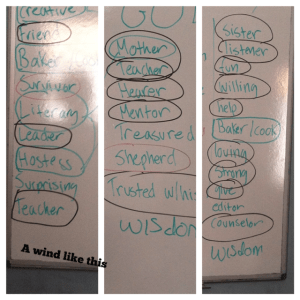 Creative
Friend
Baker
Survivor
Literary
Leader
Hostess
Surprising
Teacher
A wind like this
Mother
Teacher
Hearer
Mentor
Treasured
Shepherd
Trusted w/his
wisdom
Sister
listener
fun
willing
help
Baker/cook
loving
Strong
give
editor
Counselor
Wisdom